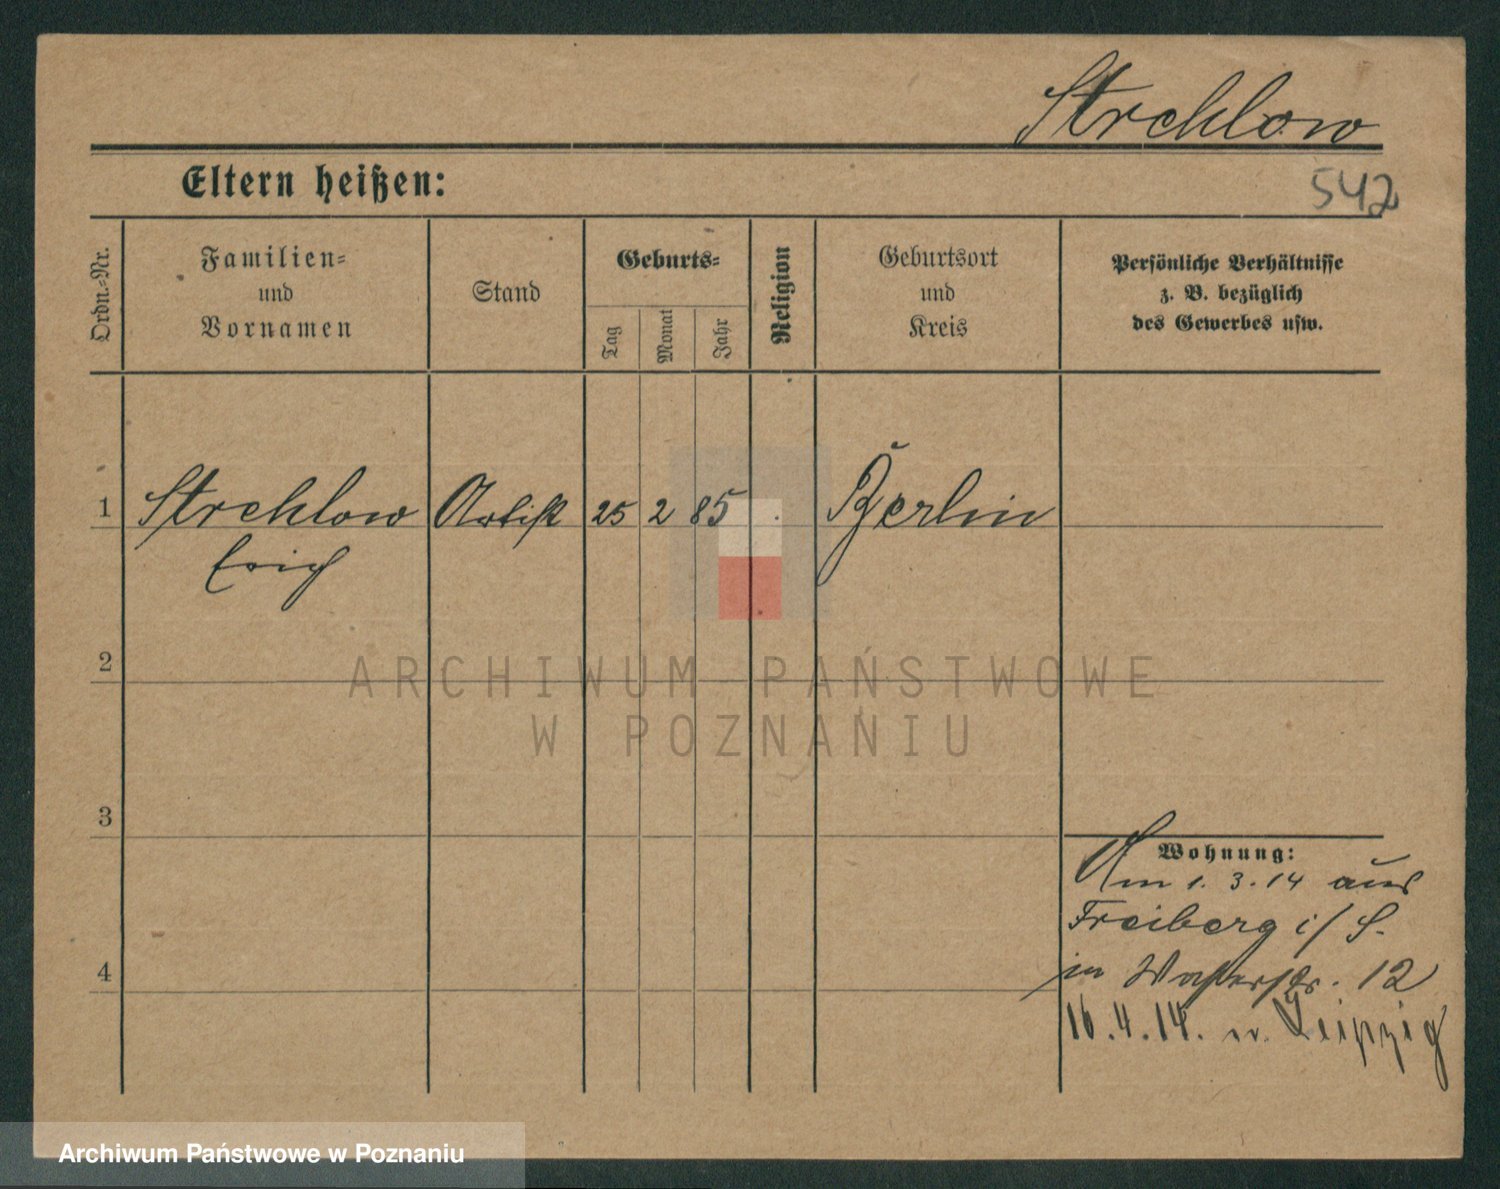 Strehlow
Eltern heißen:
542
Ordn.-Nr.
Familien-
und
Vornamen
Stand
Geburts-
Tag
Monat
Jahr
Religion
Geburtsort
und
Kreis
Persönliche Verhältnisse
z. B. bezüglich
des Gewerbes usw.
1 Strehlow Artist 25 2 85 Berlin
Erich
2
3
4
Wohnung:
Am 1. 3. 14 aus
Freiberg i/S.
in Wasserstr. 12
16.4.14. n. Leipzig
ARCHIWUM PAŃSTWOWE
W POZNANIU
Archiwum Państwowe w Poznaniu